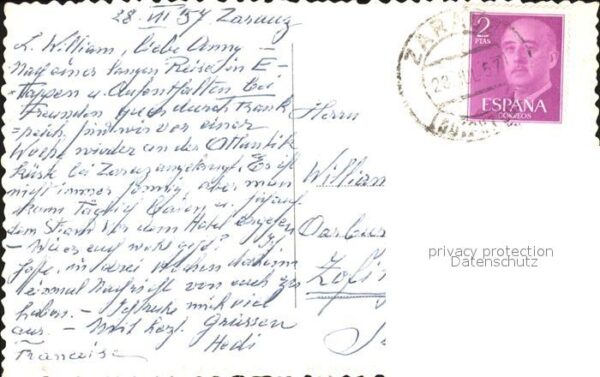 28. VII '57 Zarauz
L. William, liebe Anny —
Nach einer langen Reise in E-
tappen u. Aufenthalten bei
Freunden quer durch Frank-
=reich, sind wir vor einer
Woche wieder an der Atlantik
küste bei Zarauz angelangt. Es ist
nicht immer sonnig, aber man
kann täglich baden u.
dem Strand vor dem Hotel
— Wie es euch wohl geht? Ich
hoffe, in drei Wochen daheim
einmal Nachricht von euch zu
haben. — Ich freue mich viel
aus. — Mit herzl. Grüssen
Hedi
Francoise
Herrn
William
Oarbur
Zofin
ZARA
28 JUL 57
2
PTAS
ESPAÑA
CORREOS
privacy protection
Datenschutz